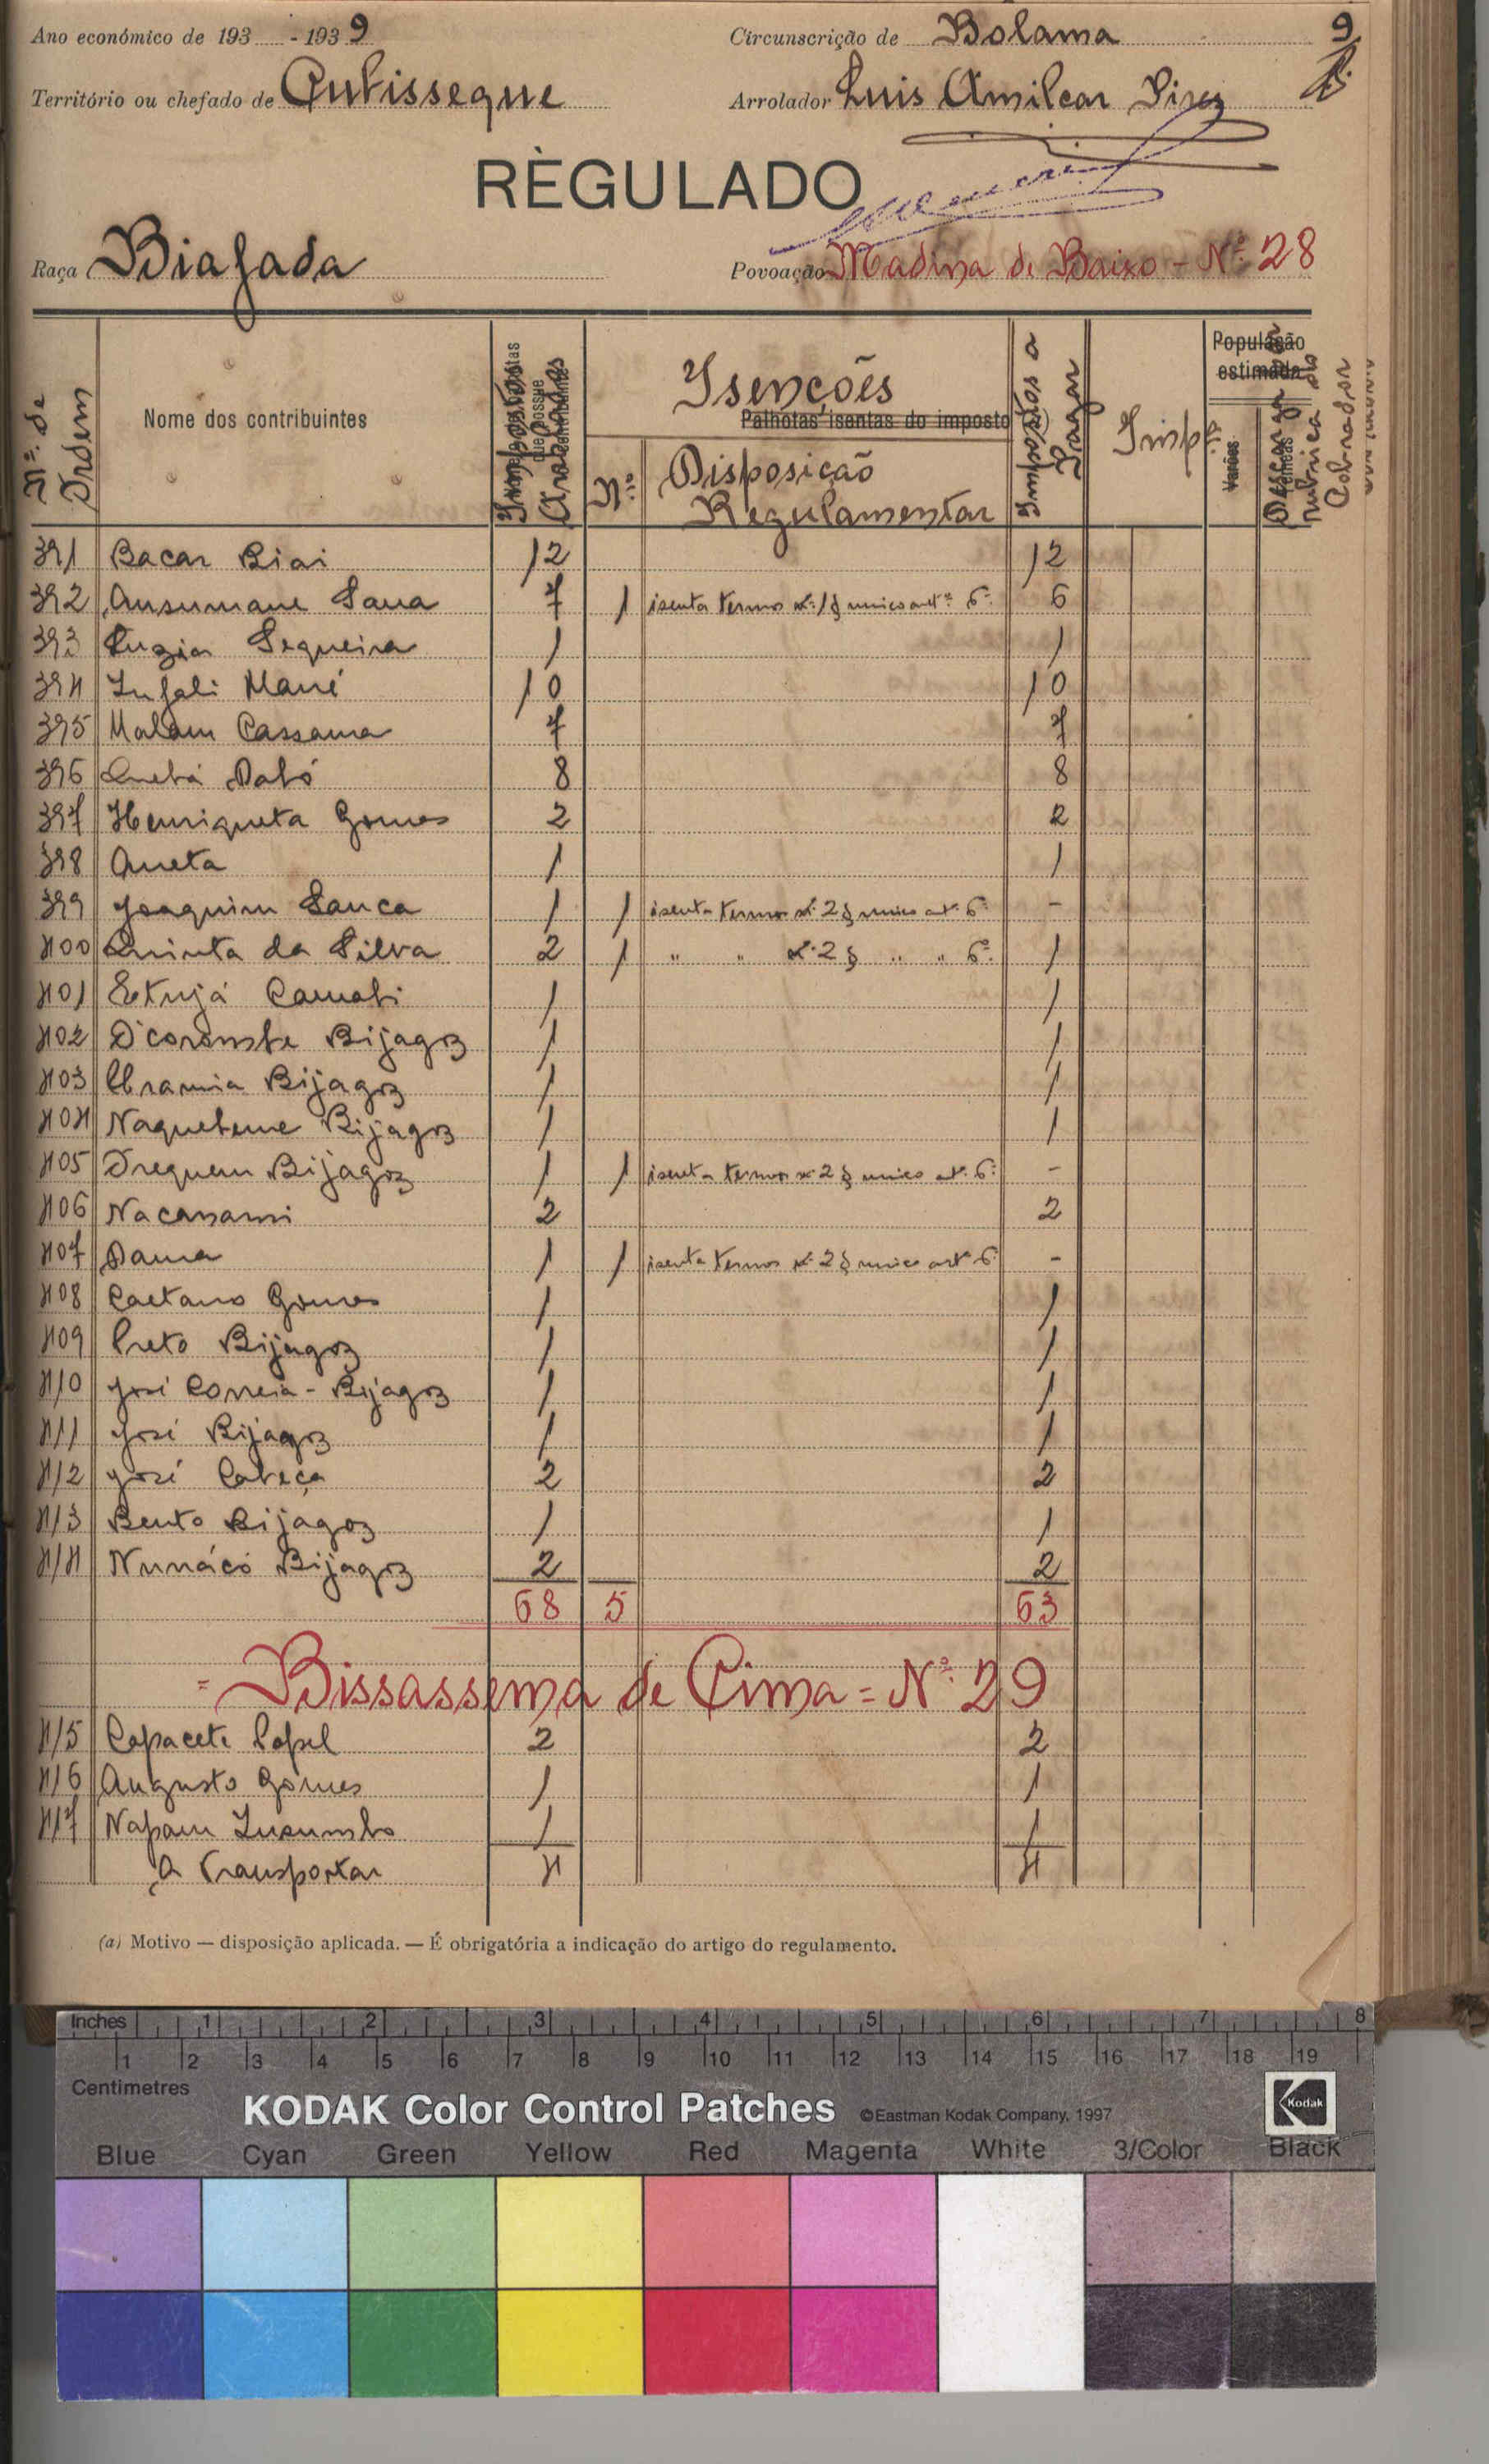 Ano económico de 193 - 1939 Circunscrição de Bolama 9
Território ou chefado de Cubisseque Arrolador Luis Amilcar Pires
RÈGULADO
Raça Biafada Povoação Madina de Baixo - Nº 28
Nº de Ordem
Nome dos contribuintes
Impostos Arrolados
Isenções
Palhotas isentas do imposto
Nº
Disposição Regulamentar
Impostos a Pagar
Imp
População estimada
Varões
Fêmeas
Descarga rubrica do Cobrador
391 Bacar Biai 12 12
392 Ansumane Sana 7 1 isenta termos nº 1 § unico artº 6º 6
393 Luzia Sequeira 1 1
394 Infali Mané 10 10
395 Malam Cassama 7 7
396 Quebá Dabó 8 8
397 Henriqueta Gomes 2 2
398 Aneta 1 1
399 Joaquim Sanca 1 1 isenta termos nº 2 § unico artº 6º -
400 Quinta da Silva 2 1 " " nº 2 § " " 6º 1
401 Camabi 1 1
402 Bijagoz 1 1
403 Bijagoz 1 1
404 Bijagoz 1 1
405 Bijagoz 1 1 isenta termos nº 2 § unico artº 6º -
406 Nacanami 2 2
407 Dama 1 1 isenta termos nº 2 § unico artº 6º -
408 Caetano Gomes 1 1
409 Preto Bijagoz 1 1
410 José Correia - Bijagoz 1 1
411 José Bijagoz 1 1
412 José Cabeça 2 2
413 Bento Bijagoz 1 1
414 Nunácó Bijagoz 2 2
68 5 63
= Bissassema de Cima = Nº 29
415 Capacete Papel 2 2
416 Augusto Gomes 1 1
417 Napam 1 1
A transportar 4 4
(a) Motivo — disposição aplicada. — É obrigatória a indicação do artigo do regulamento.
Inches 1 2 3 4 5 6 7 8
1 2 3 4 5 6 7 8 9 10 11 12 13 14 15 16 17 18 19
Centimetres
KODAK Color Control Patches ©Eastman Kodak Company, 1997 Kodak
Blue Cyan Green Yellow Red Magenta White 3/Color Black